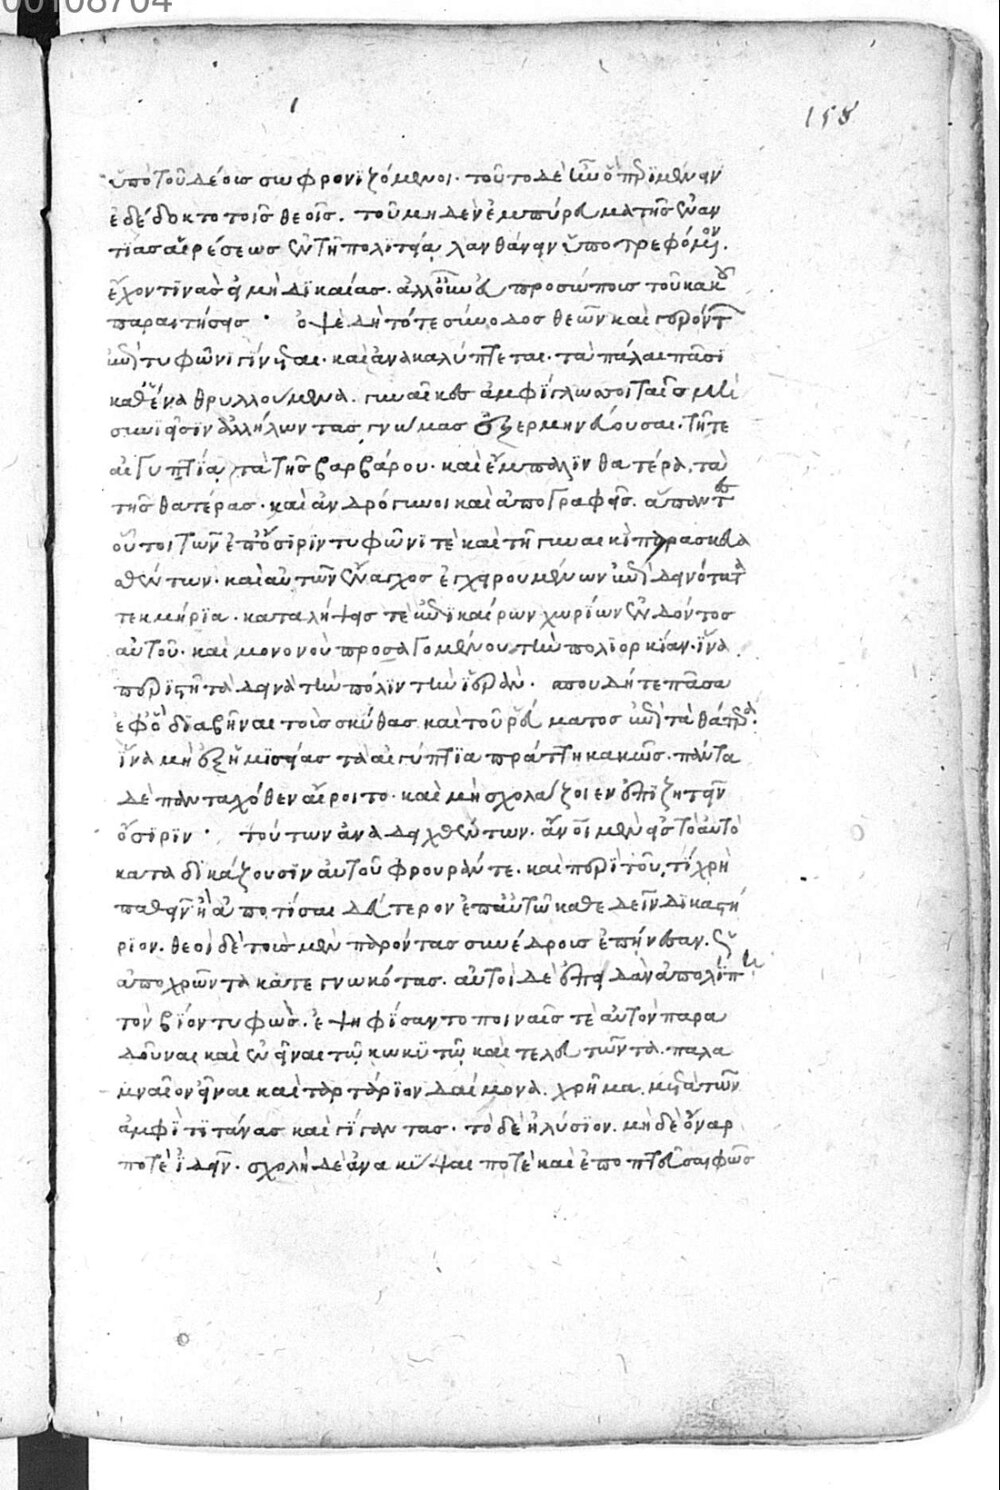 00108704
158
ὑπὸ τοῦ δέοις σωφρονιζόμενοι. τοῦτο δὲ
ἐδέδοκτο τοῖς θεοῖς. τοῦ μηδὲν ἐμπύρευμα τῆς ἐναν
τίας αἱρέσεως ἐν τῇ πολιτείᾳ λανθάνειν ὑποτρεφόμενον.
ἔχον τινὰς εἰ μὴ δικαίας. ἀλλ' οὖν προσώποις τοῦ κακοῦ
παραιτήσεις. ὀψὲ δὴ τότε σύνοδος θεῶν καὶ γερόντων
ἐπὶ τυφῶνι γίνεται. καὶ ἀνακαλύπτεται. τὰ πάλαι πᾶσι
καθ' ἕνα θρυλλούμενα. γυναῖκες ἀμφίγλωσσοι ταῖς
συνιεῖσιν ἀλλήλων τὰς γνώμας ἐξερμηνεύουσαι. τῇ τε
αἰγυπτίᾳ τὰ τῆς βαρβάρου. καὶ ἔμπαλιν θατέρᾳ τὰ
τῆς θατέρας. καὶ ἀνδρόγυνοι καὶ ἀπογραφεῖς. ἅπαντες
οὗτοι τῶν ἐπ' ὄσιριν τυφῶνί τε καὶ τῇ γυναικὶ παρασκευα
σθέντων. καὶ αὐτῶν ἔναγχος ἐγχειρουμένων ἐπὶ δεινότατα
τεκμήρια. καταλήψεις τὲ ἐπικαίρων χωρίων ἐνδόντος
αὐτοῦ. καὶ μονονοὺ προσαγομένου τὴν πολιορκίαν. ἵνα
περιστῇ τὰ δεινὰ τὴν πόλιν τὴν ἱεράν. σπουδή τε πᾶσα
ἐφ' ᾧ διαβῆναι τοὺς σκύθας καὶ τοῦ ῥεύματος ἐπὶ τὰ θάτερα.
ἵνα μὴ ἐξ ἡμισείας τὰ αἰγύπτια πράττῃ κακῶς. πάντα
δὲ πανταχόθεν αἴροιτο. καὶ μὴ σχολάζοιεν ἐπιζητεῖν
ὄσιριν. τούτων ἀναδειχθέντων. ἄνοι μὲν εἰς τὸ αὐτὸ
καταδικάζουσιν αὐτοῦ φρουράν τε. καὶ περὶ τοῦ, τί χρὴ
παθεῖν ἢ ἀποτίσαι δεύτερον ἐπ' αὐτῷ καθεδεῖν δικαστή
ριον. θεοὶ δὲ τοὺς μὲν παρόντας συνέδρους ἐπῄνεσαν.
ἀποχρῶντα κατεγνωκότας. αὐτοὶ δὲ ἐπειδὰν ἀπολίπῃ
τὸν βίον τυφὼς. ἐψηφίσαντο ποιναῖς τὲ αὐτὸν παρα
δοῦναι καὶ ἐνεῖναι τῷ κωκυτῷ καὶ τελευτῶντα. παλα
μναῖον εἶναι καὶ ταρτάριον δαίμονα. χρῆμα. μετὰ τῶν
ἀμφὶ τιτάνας καὶ γίγαντας. τὸ δὲ ἠλύσιον. μηδὲ ὄναρ
ποτὲ ἰδεῖν. σχολῇ δὲ ἀνακύψαι ποτὲ καὶ ἐποπτεῦσαι φῶς